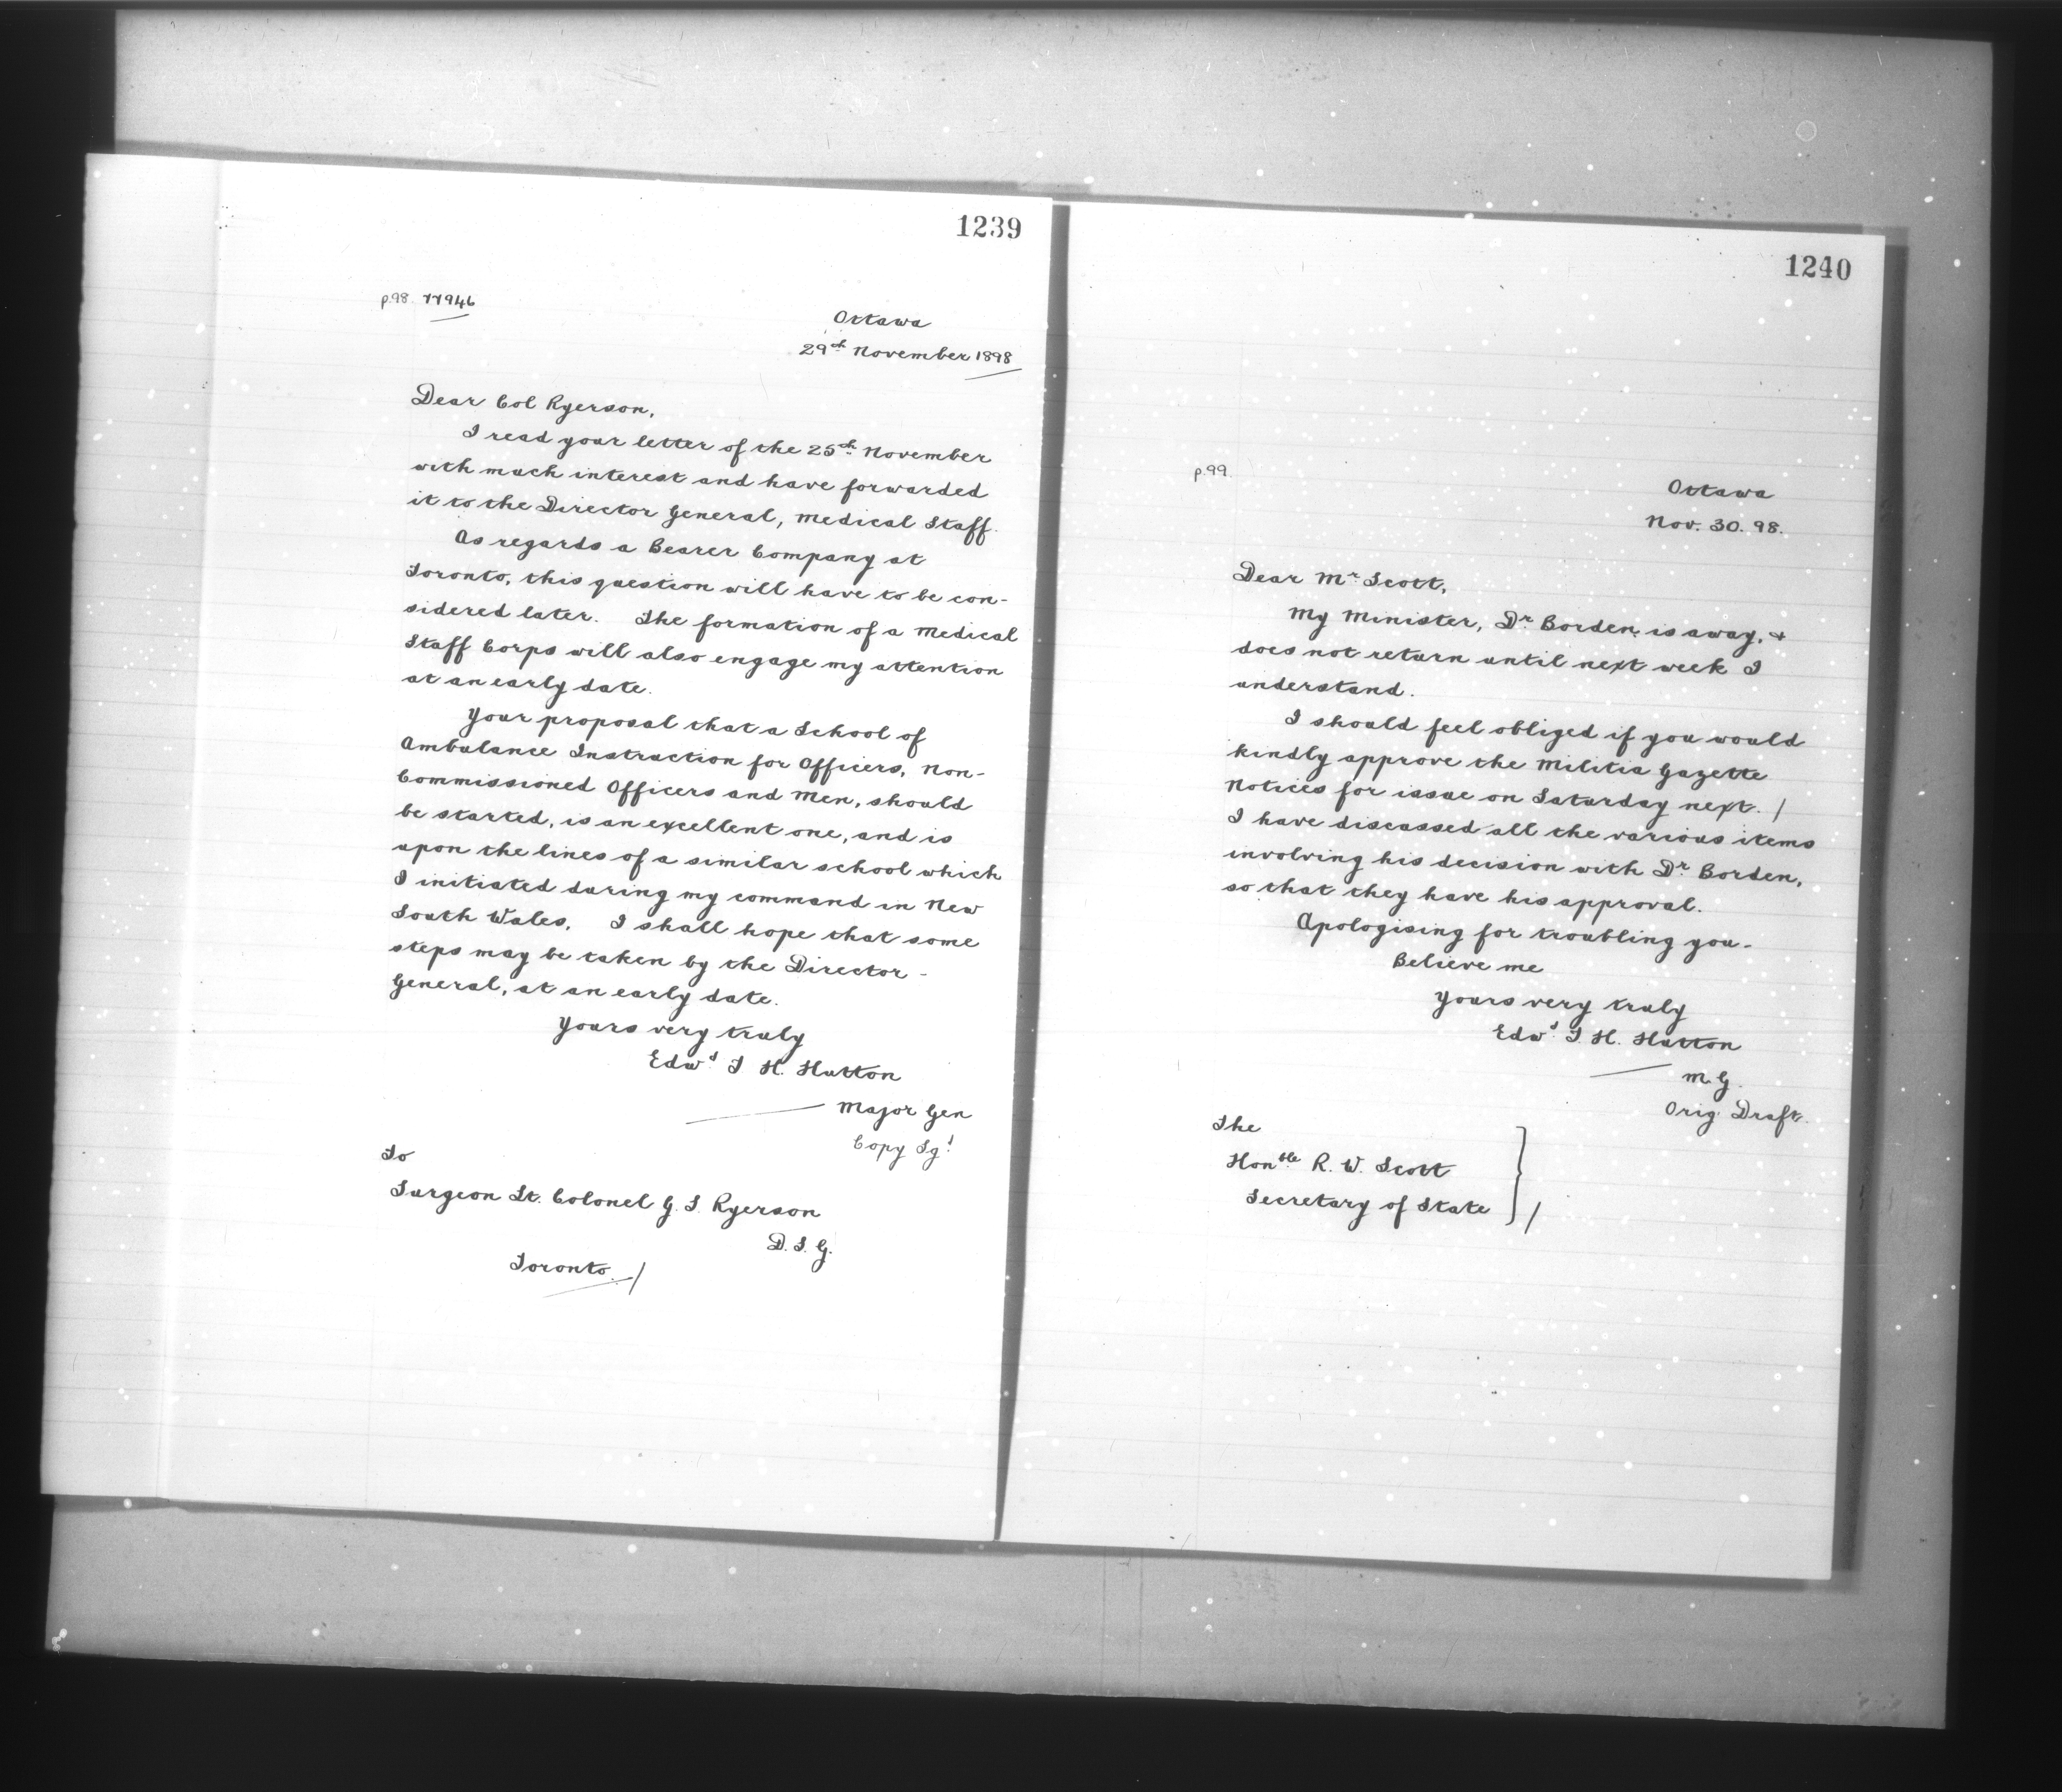 1239
p.98. 77946
Ottawa
29th November 1898
Dear Col Ryerson,
I read your letter of the 25th November
with much interest and have forwarded
it to the Director General, Medical Staff.
As regards a Bearer Company at
Toronto, this question will have to be con-
sidered later. The formation of a Medical
Staff Corps will also engage my attention
at an early date.
Your proposal that a School of
Ambulance Instruction for Officers, Non-
Commissioned Officers and Men, should
be started, is an excellent one, and is
upon the lines of a similar school which
I initiated during my command in New
South Wales. I shall hope that some
steps may be taken by the Director-
General, at an early date.
Yours very truly
Edwd T H. Hutton
Major Gen
Copy Sgd
To
Surgeon Lt. Colonel G. S. Ryerson
D. S. G.
Toronto /
1240
p.99.
Ottawa
Nov. 30. 98.
Dear Mr Scott,
My Minister, Dr Borden, is away, &
does not return until next week I
understand.
I should feel obliged if you would
kindly approve the Militia Gazette
Notices for issue on Saturday next. /
I have discussed all the various items
involving his decision with Dr Borden,
so that they have his approval.
Apologising for troubling you-
Believe me
Yours very truly
Edwd T. H. Hutton
M.G.
Orig. Draft.
The
Honble R. W. Scott
Secretary of State /